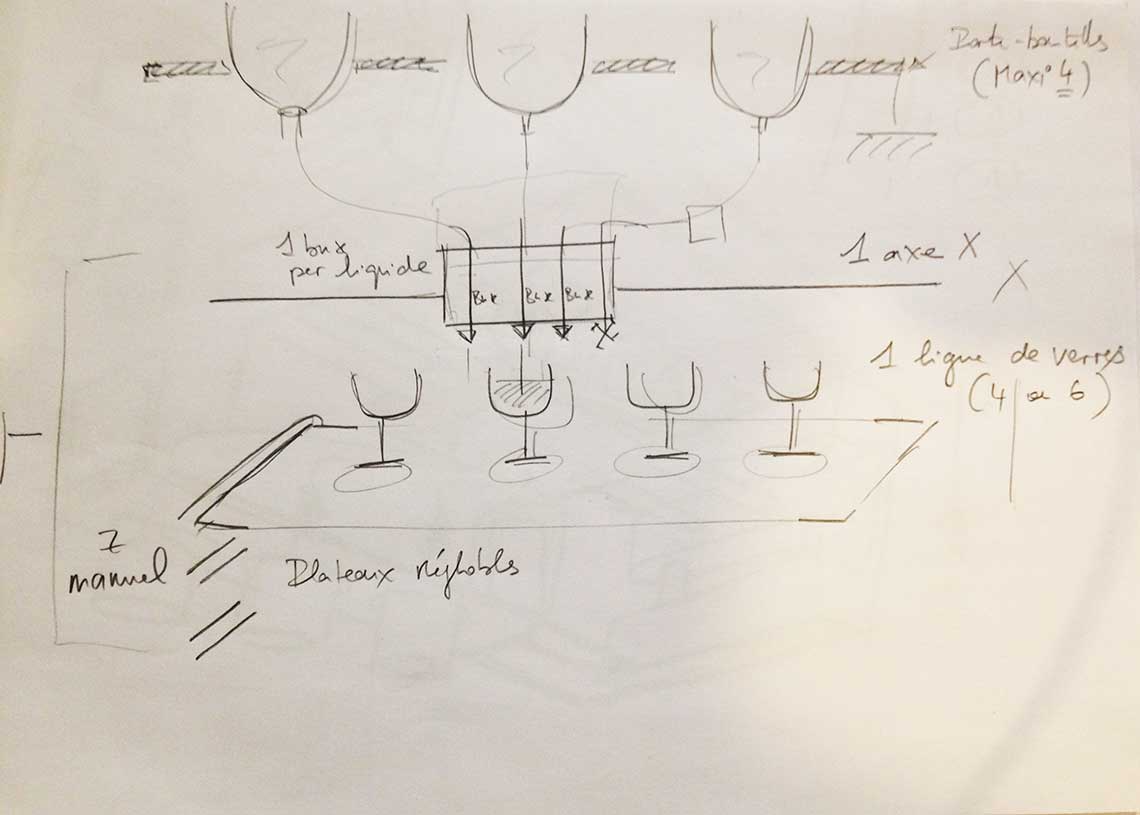 Porte-bouteilles
(Maxi° 4)
1 bux
per liquide
1 axe X
X
Bux
Bux
Bux
1 ligne de verres
(4 ou 6)
Z
manuel
Plateaux réglables